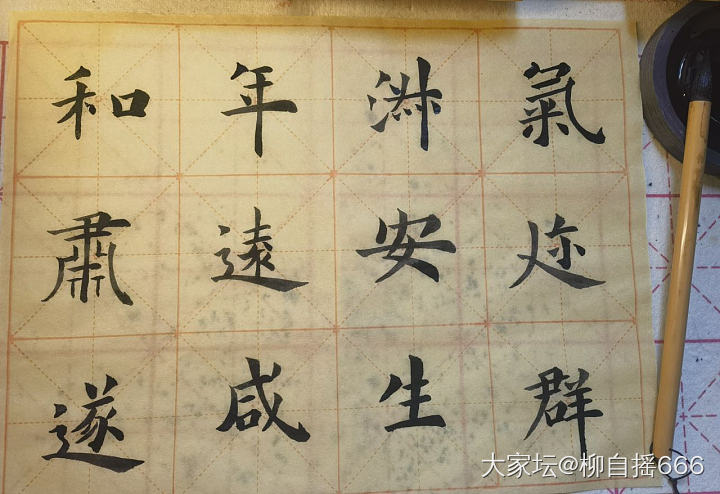 氣淑年和
迩安遠肅
群生咸遂
大家坛@柳自摇666